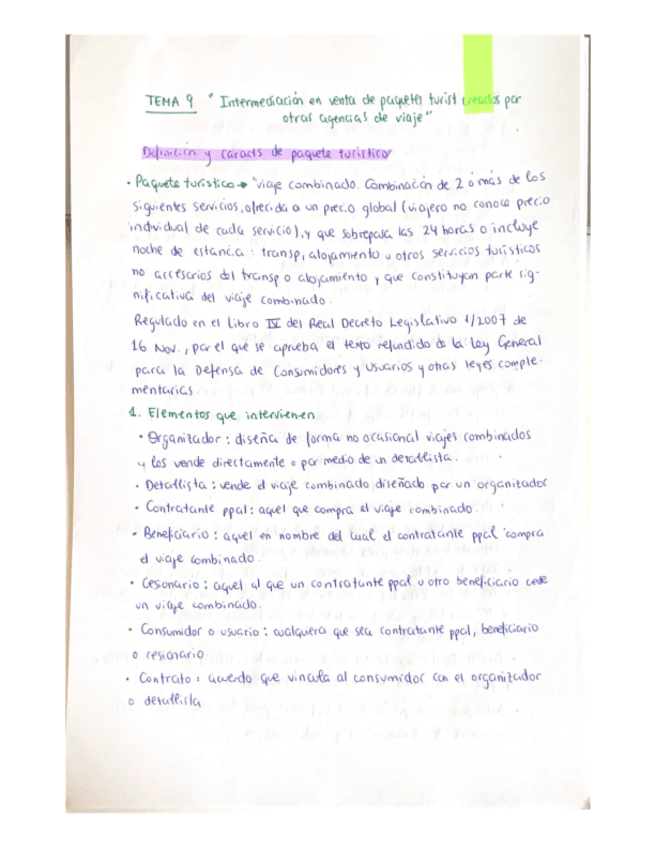 TEMA 9 "Intermediación en venta de paquetes turist creados por
otras agencias de viaje"
Definición y caracts de paquete turístico
· Paquete turístico → "viaje combinado. Combinación de 2 ó más de los
siguientes servicios, ofrecida a un precio global (viajero no conoce precio
individual de cada servicio), y que sobrepasa las 24 horas o incluye
noche de estancia: transp, alojamiento u otros servicios turísticos
no accesorios del transp o alojamiento y que constituyan parte sig-
nificativa del viaje combinado.
Regulado en el Libro IV del Real Decreto Legislativo 1/2007 de
16 Nov., por el que se aprueba el texto refundido de la Ley General
para la Defensa de Consumidores y Usuarios y otras leyes comple-
mentarias
1. Elementos que intervienen
· Organizador: diseña de forma no ocasional viajes combinados
y los vende directamente o por medio de un detallista.
· Detallista: vende el viaje combinado diseñado por un organizador
· Contratante ppal: aquel que compra el viaje combinado.
· Beneficiario: aquel en nombre del cual el contratante ppal compra
el viaje combinado.
· Cesonario: aquel al que un contratante ppal u otro beneficiario cede
un viaje combinado.
· Consumidor o usuario: cualquiera que sea contratante ppal, beneficiario
o cesionario.
· Contrato: acuerdo que vincula al consumidor con el organizador
o detallista